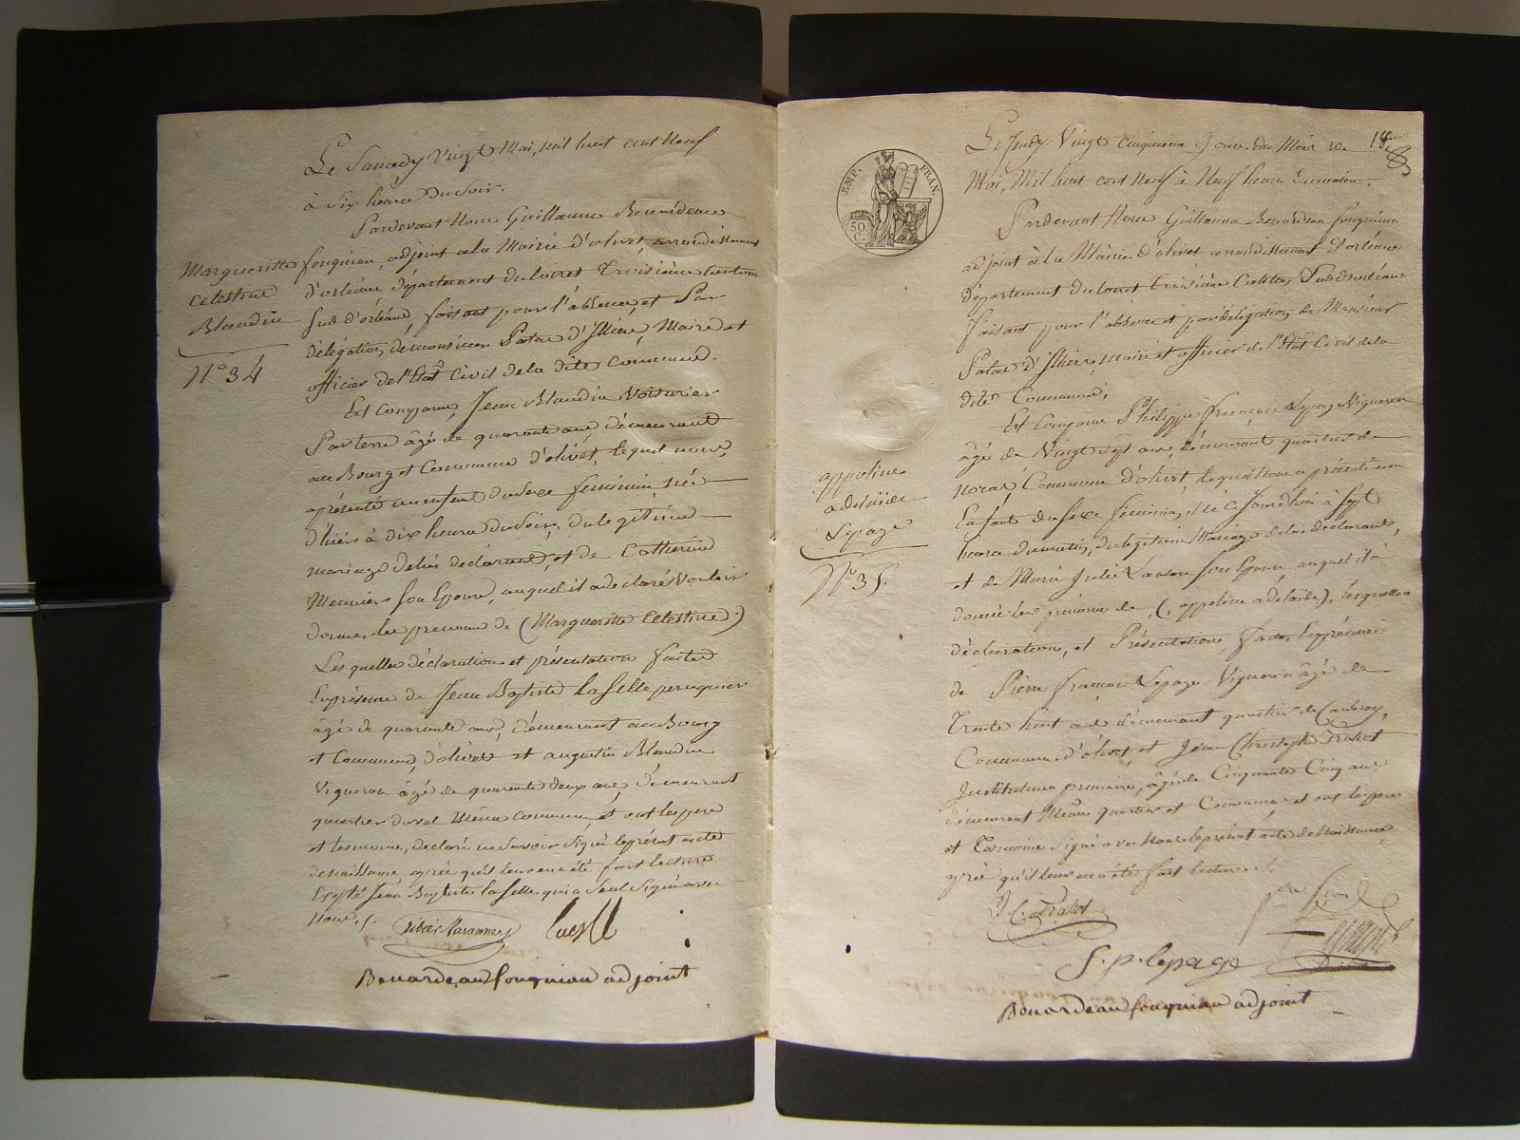 Le Samedy Vingt Mai, mil huit cent Neuf
à six heure du soir.
Pardevant Nous Guillaume Bouardeau
fouqniau, adjoint a la Mairie d'olivet, arrondissement
d'orléans département du loiret Troisième
Sud d'orléans, faisant pour l'absence, et Par
délégation, de monsieur Patas d'Illiers, Maire et
officier de l'Etat Civil de la dite commune.
Est comparu, Jean Blandin Voiturier
Par terre âgé de quarante ans, demeurant
au Bourg et Commune d'olivet, lequel nous
a présenté un enfant du sexe feminin née
d'hiér à dix heure du soir, du légitime
mariage de lui declarant, et de Catherine
Meunier son Epouse, auquel il a declaré Vouloir
donner les prenoms de (Margueritte Celestine.)
Les quelles déclaration et présentation faites
En présence de Jean Baptiste Laselle perruquier
âgé de quarante ans, demeurant au Bourg
et Commune, d'olivet et augustin Blandin
Vigneron âgé de quarante deux ans, demeurant
quartier du val Même commune, et ont les pere
et témoins, declaré ne savoir signé le présent acte
de naissance, après qu'il leur en a été fait lecture
Excepté Jean Baptiste laselle qui a Seul Signé avec
Nous ./.
Margueritte
Celestine
Blandin
N° 34
Laselle
Bouardeau fouqniau adjoint
18
Le Jeudy Vingt Cinquieme Jour du Mois de
Mai, Mil huit cent Neuf à Neuf heure du matin.
Pardevant Nous Guillaume Bouardeau fouqniau
adjoint à la Mairie d'olivet arrondissement d'orléans
département du loiret troisième Sud d'orléans
faisant pour l'absence et par délégation, de Monsieur
Patas d'Illiers, maire et officier de l'Etat Civil de la
dite Commune;
Est Comparu Philippe François Lepage Vigneron
âgé de Vingt sept ans, demeurant quartier de
Noras, Commune d'olivet, lequel Nous a présenté un
Enfant du sexe féminin, née Ce Jourd'hui à Sept
heure du matin, du légitime Mariage de lui declarant,
et de Marie Julie son Epouse, auquel il a
donné les prénoms de (appoline adelaide), lesquelles
déclaration, et Présentation, faites En présence
de Pierre François Lepage Vigneron âgé de
Trente huit ans demeurant quartier de Caubray,
Commune d'olivet, et Jean Christophe Tralot
Instituteur primaire, âgé de Cinquante Cinq ans,
demeurant Même quartier et Commune et ont les pere
et Temoins Signé avec Nous le présent acte de Naissance
après qu'il leur en a été fait lecture ./.
EMP. FRAN.
50
C.
appoline
adelaide
Lepage
N° 35.
J. C. Tralot
f. p. lepage
Bouardeau fouqniau adjoint